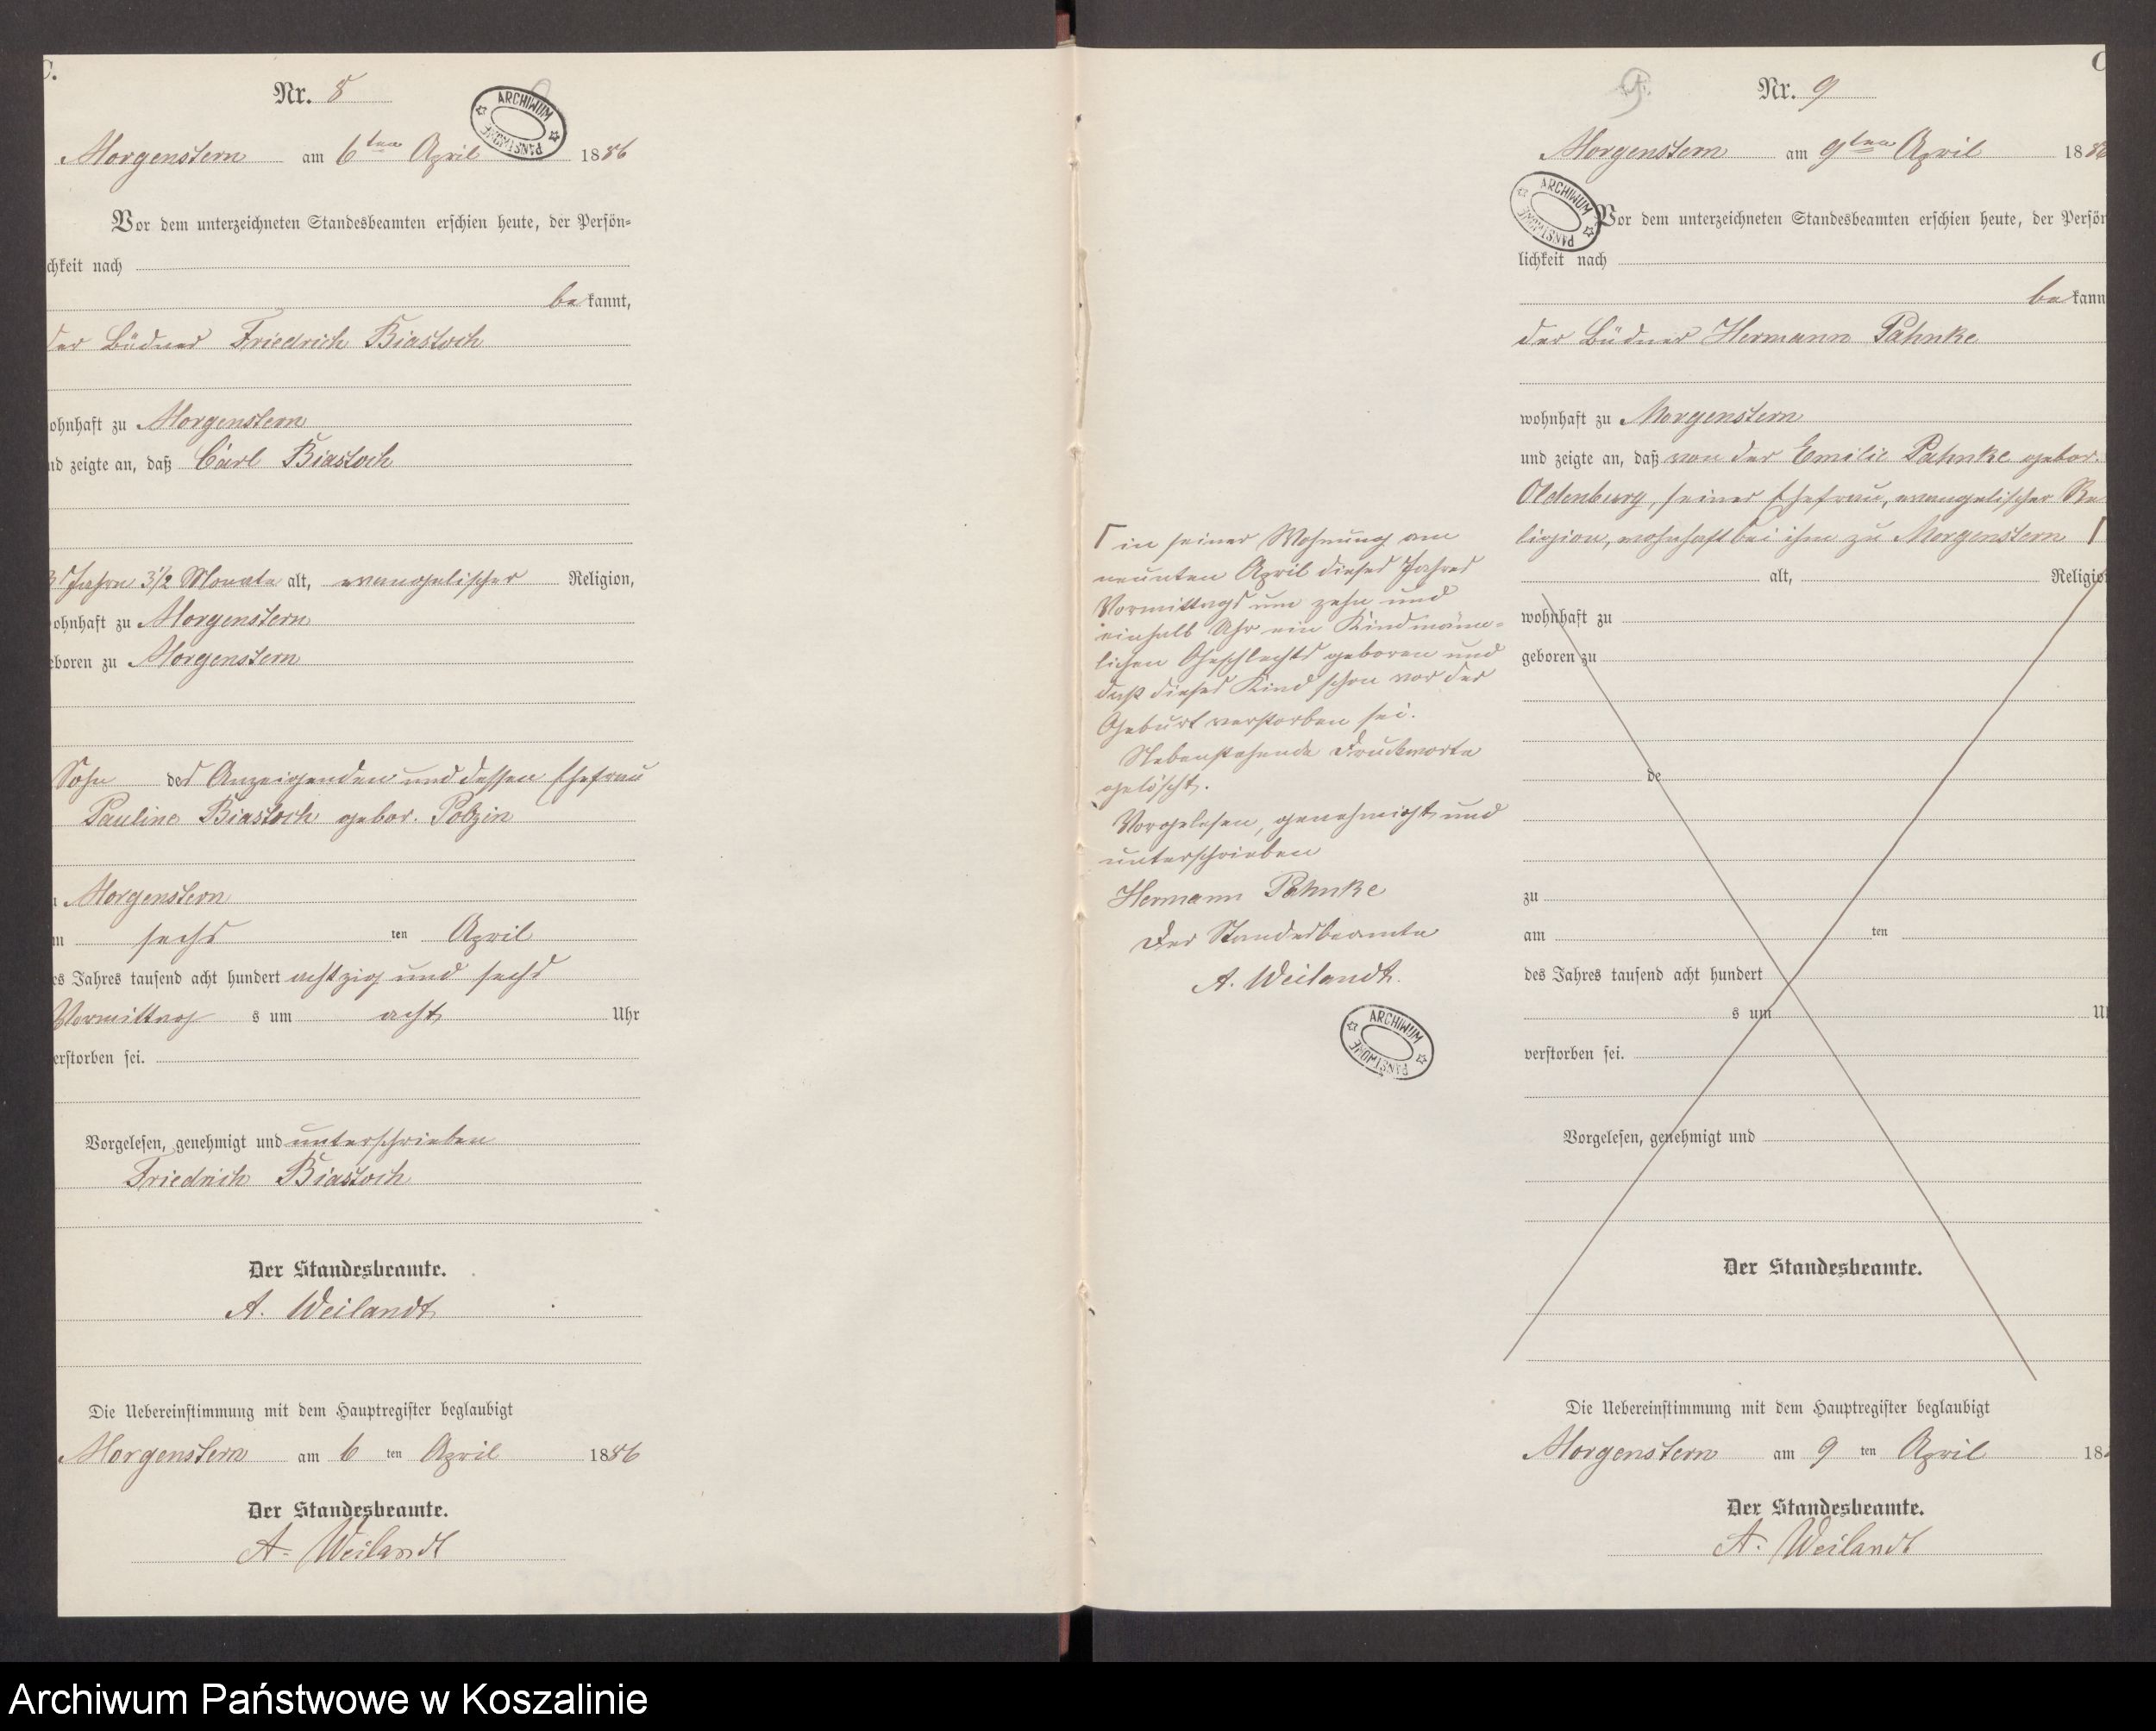 C.
Nr. 8
Morgenstern am 6ten April 1886
Vor dem unterzeichneten Standesbeamten erschien heute, der Persön=
chkeit nach
be kannt,
der Büdner Friedrich Biastoch
ohnhaft zu Morgenstern
nd zeigte an, daß Carl Biastoch
3 Jahre 3 1/2 Monate alt, evangelischer Religion,
ohnhaft zu Morgenstern
eboren zu Morgenstern
Sohn des Anzeigenden und dessen Ehefrau
Pauline Biastoch gebor. Polzin
u Morgenstern
m sechs ten April
es Jahres tausend acht hundert achtzig und sechs
Vormittag s um acht Uhr
erstorben sei.
Vorgelesen, genehmigt und unterschrieben
Friedrich Biastoch
Der Standesbeamte.
A. Weilandt
Die Uebereinstimmung mit dem Hauptregister beglaubigt
Morgenstern am 6 ten April 1886
Der Standesbeamte.
A. Weilandt
ARCHIWUM PAŃSTWOWE
Γ in seiner Wohnung am
neunten April dieses Jahres
Vormittags um zehn und
einhalb Uhr ein Kind männ=
lichen Geschlechts geboren und
daß dieses Kind schon vor der
Geburt verstorben sei.
Nebenstehende Druckworte
gelöscht.
Vorgelesen, genehmigt und
unterschrieben
Hermann Pahnke
Der Standesbeamte
A. Weilandt.
ARCHIWUM PAŃSTWOWE
C
9.
Nr. 9
Morgenstern am 9ten April 1886
ARCHIWUM PAŃSTWOWE
Vor dem unterzeichneten Standesbeamten erschien heute, der Persön
lichkeit nach
be kann
der Büdner Hermann Pahnke
wohnhaft zu Morgenstern
und zeigte an, daß von der Emilie Pahnke gebor.
Oldenburg, seiner Ehefrau, evangelischer Re
ligion, wohnhaft bei ihm zu Morgenstern Γ
alt, Religio
wohnhaft zu
geboren zu
de
zu
am ten
des Jahres tausend acht hundert
s um U
verstorben sei.
Vorgelesen, genehmigt und
Der Standesbeamte.
Die Uebereinstimmung mit dem Hauptregister beglaubigt
Morgenstern am 9 ten April 18
Der Standesbeamte.
A. Weilandt
Archiwum Państwowe w Koszalinie